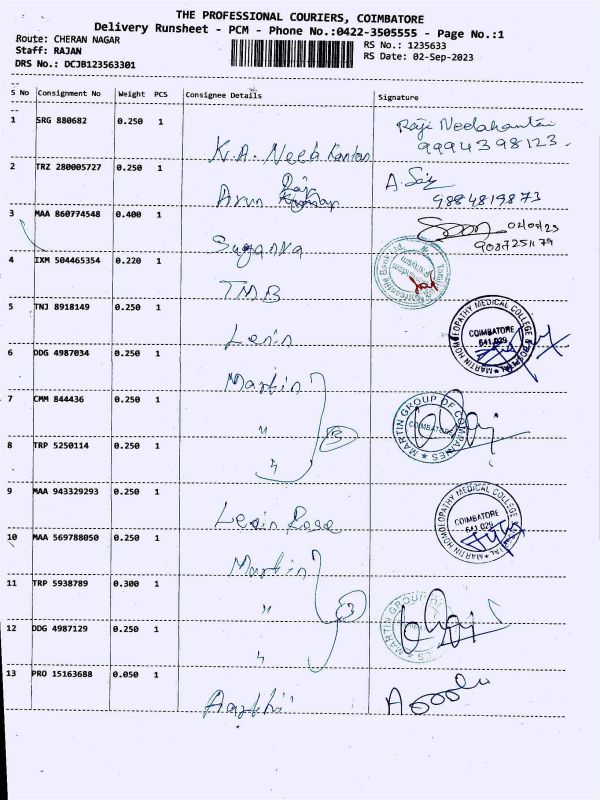 THE PROFESSIONAL COURIERS, COIMBATORE
Delivery Runsheet - PCM - Phone No.:0422-3505555 - Page No.:1
Route: CHERAN NAGAR
RS No.: 1235633
Staff: RAJAN
RS Date: 02-Sep-2023
DRS No.: DCJB123563301
S No Consignment No Weight PCS Consignee Details Signature
1 SRG 880682 0.250 1 K.A. Neela Kantan Raji Neelakantan
9994398123
2 TRZ 280005727 0.250 1 Arun A.
9884819873
3 MAA 860774548 0.400 1 Suganya 02/09/23
4 IXM 504465354 0.220 1 TMB
5 TNJ 8918149 0.250 1 Lenin MARTIN HOMOEOPATHY MEDICAL COLLEGE & HOSPITAL COIMBATORE 641 029
6 DDG 4987034 0.250 1 Martin
7 CMM 844436 0.250 1 " 3 MARTIN GROUP OF COMPANIES COIMBATORE
8 TRP 5250114 0.250 1 "
9 MAA 943329293 0.250 1 Lenin Rose MARTIN HOMOEOPATHY MEDICAL COLLEGE COIMBATORE 641 029
10 MAA 569788050 0.250 1 Martin
11 TRP 5938789 0.300 1 " 3 MARTIN GROUP OF
12 DDG 4987129 0.250 1 "
13 PRO 15163688 0.050 1 Aarthi